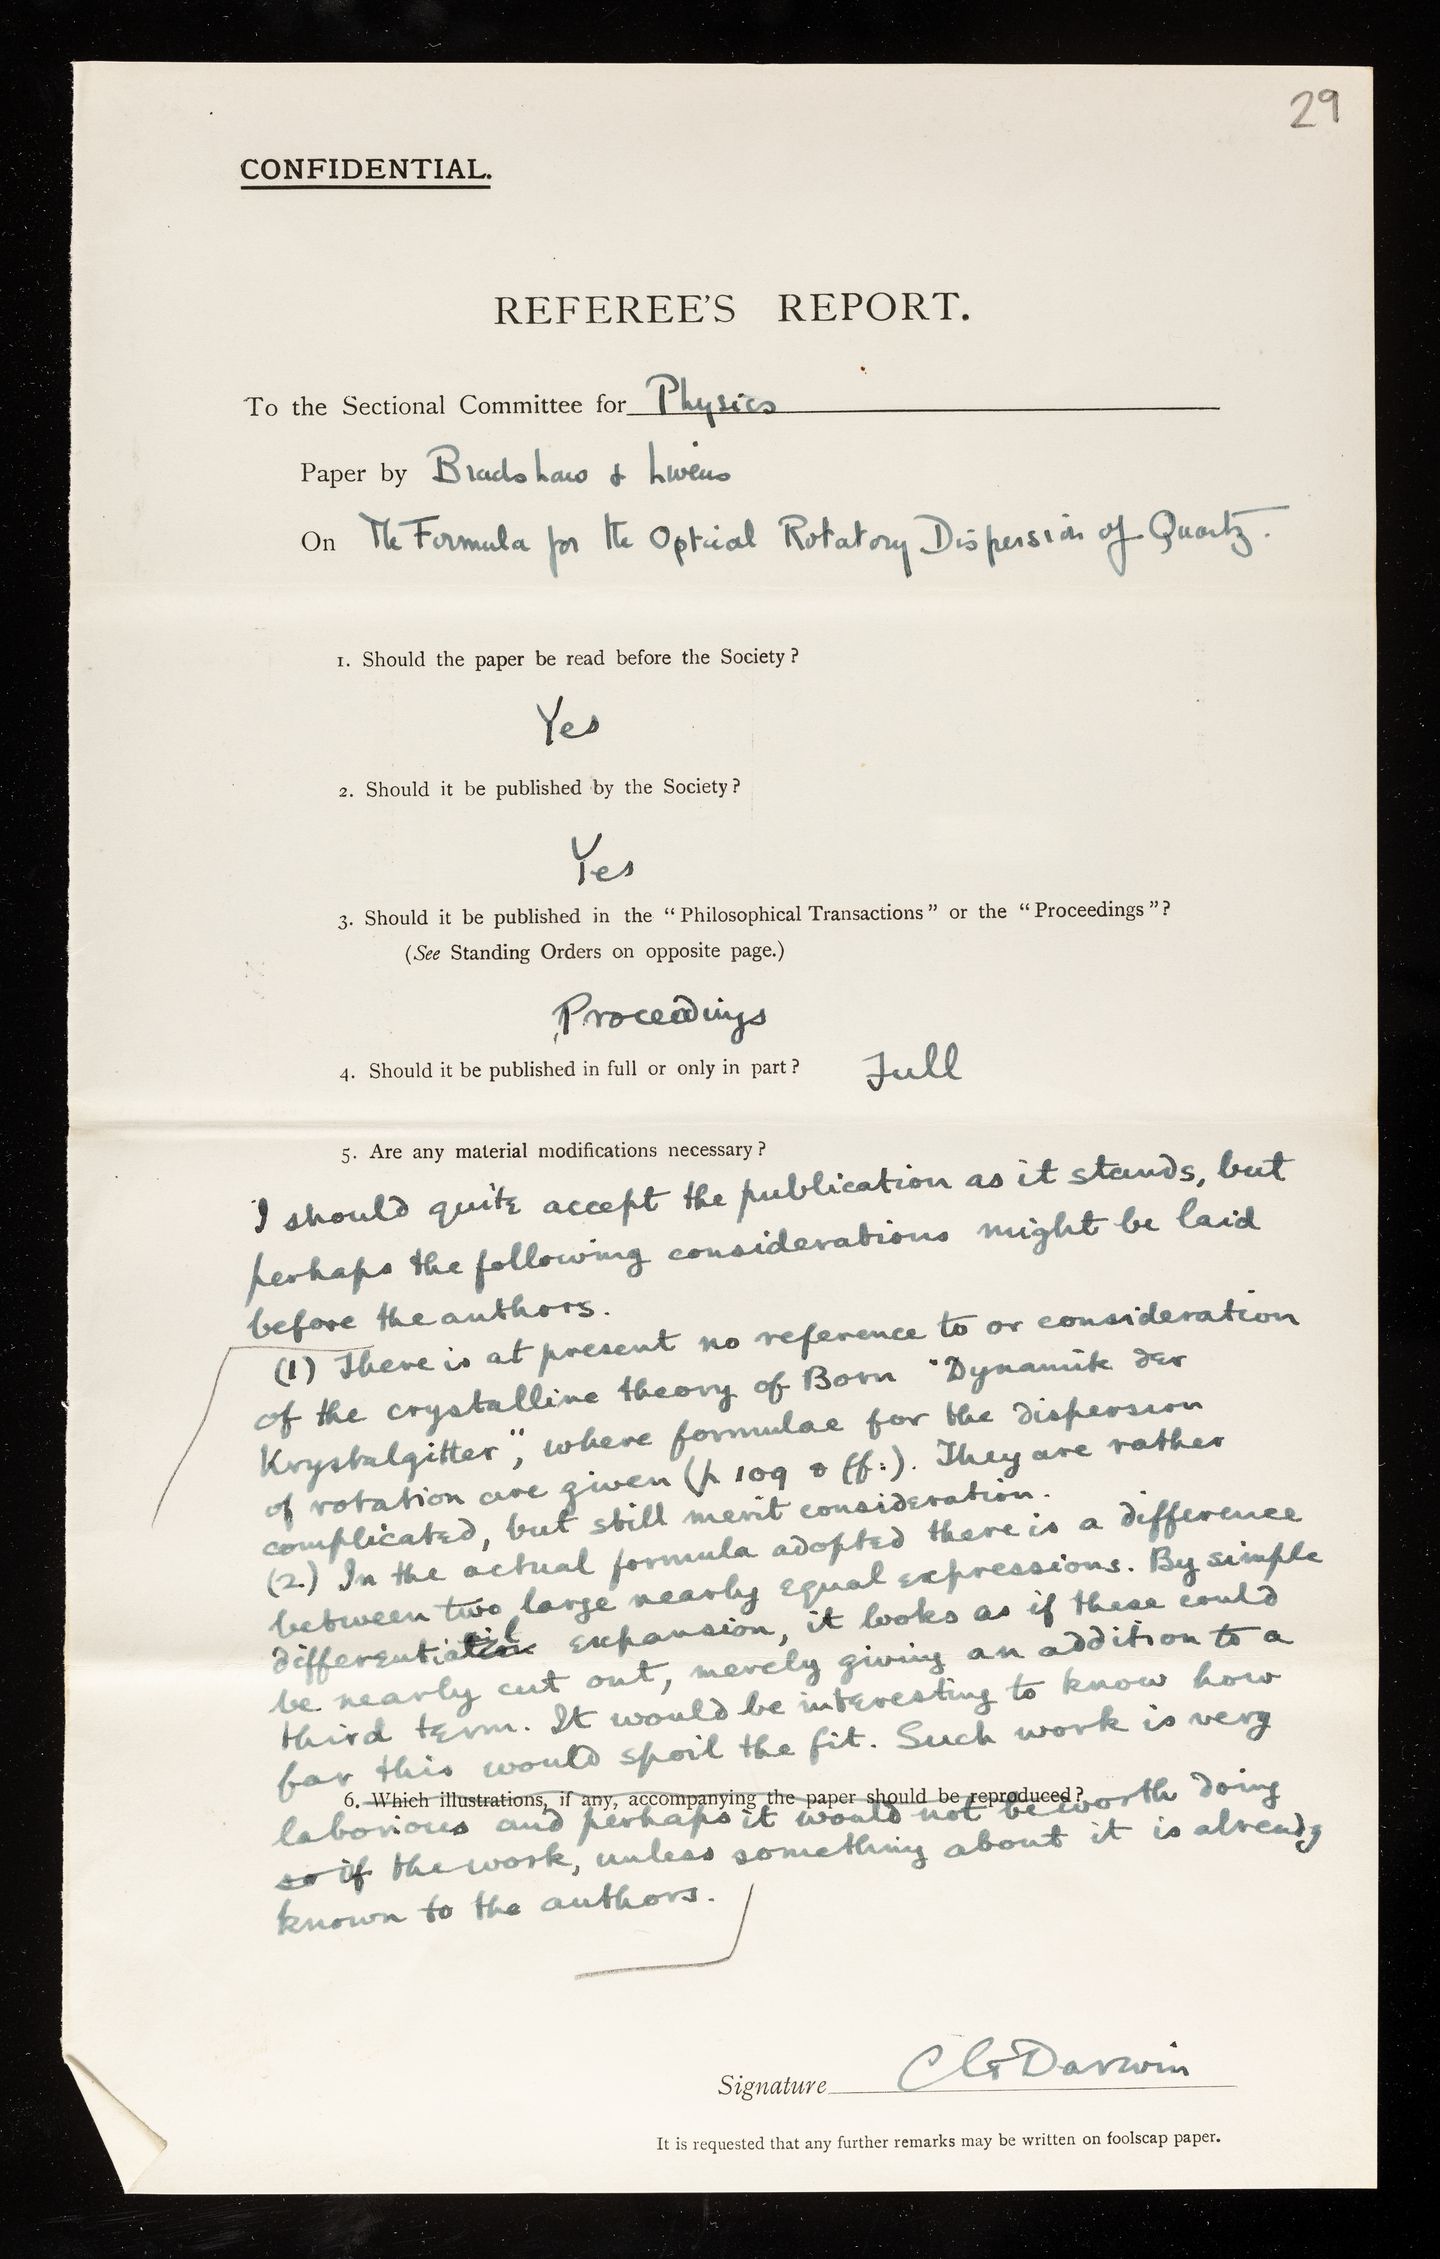 29
CONFIDENTIAL.
REFEREE'S REPORT.
To the Sectional Committee for Physics
Paper by Bradshaw & Livens
On The Formula for the Optical Rotatory Dispersion of Quartz.
1. Should the paper be read before the Society?
Yes
2. Should it be published by the Society?
Yes
3. Should it be published in the "Philosophical Transactions" or the "Proceedings"?
(See Standing Orders on opposite page.)
Proceedings
4. Should it be published in full or only in part? Full
5. Are any material modifications necessary?
I should quite accept the publication as it stands, but
perhaps the following considerations might be laid
before the authors.
(1) There is at present no reference to or consideration
of the crystalline theory of Born "Dynamik der
Krystalgitter", where formulae for the dispersion
of rotation are given (p 109 & ff:). They are rather
complicated, but still merit consideration.
(2.) In the actual formula adopted there is a difference
between two large nearly equal expressions. By simple
differential expansion, it looks as if these could
be nearly cut out, merely giving an addition to a
third term. It would be interesting to know how
far this would spoil the fit. Such work is very
6. Which illustrations, if any, accompanying the paper should be reproduced?
laborious and perhaps it would not be worth doing
so if the work, unless something about it is already
known to the authors.
Signature CGDarwin
It is requested that any further remarks may be written on foolscap paper.